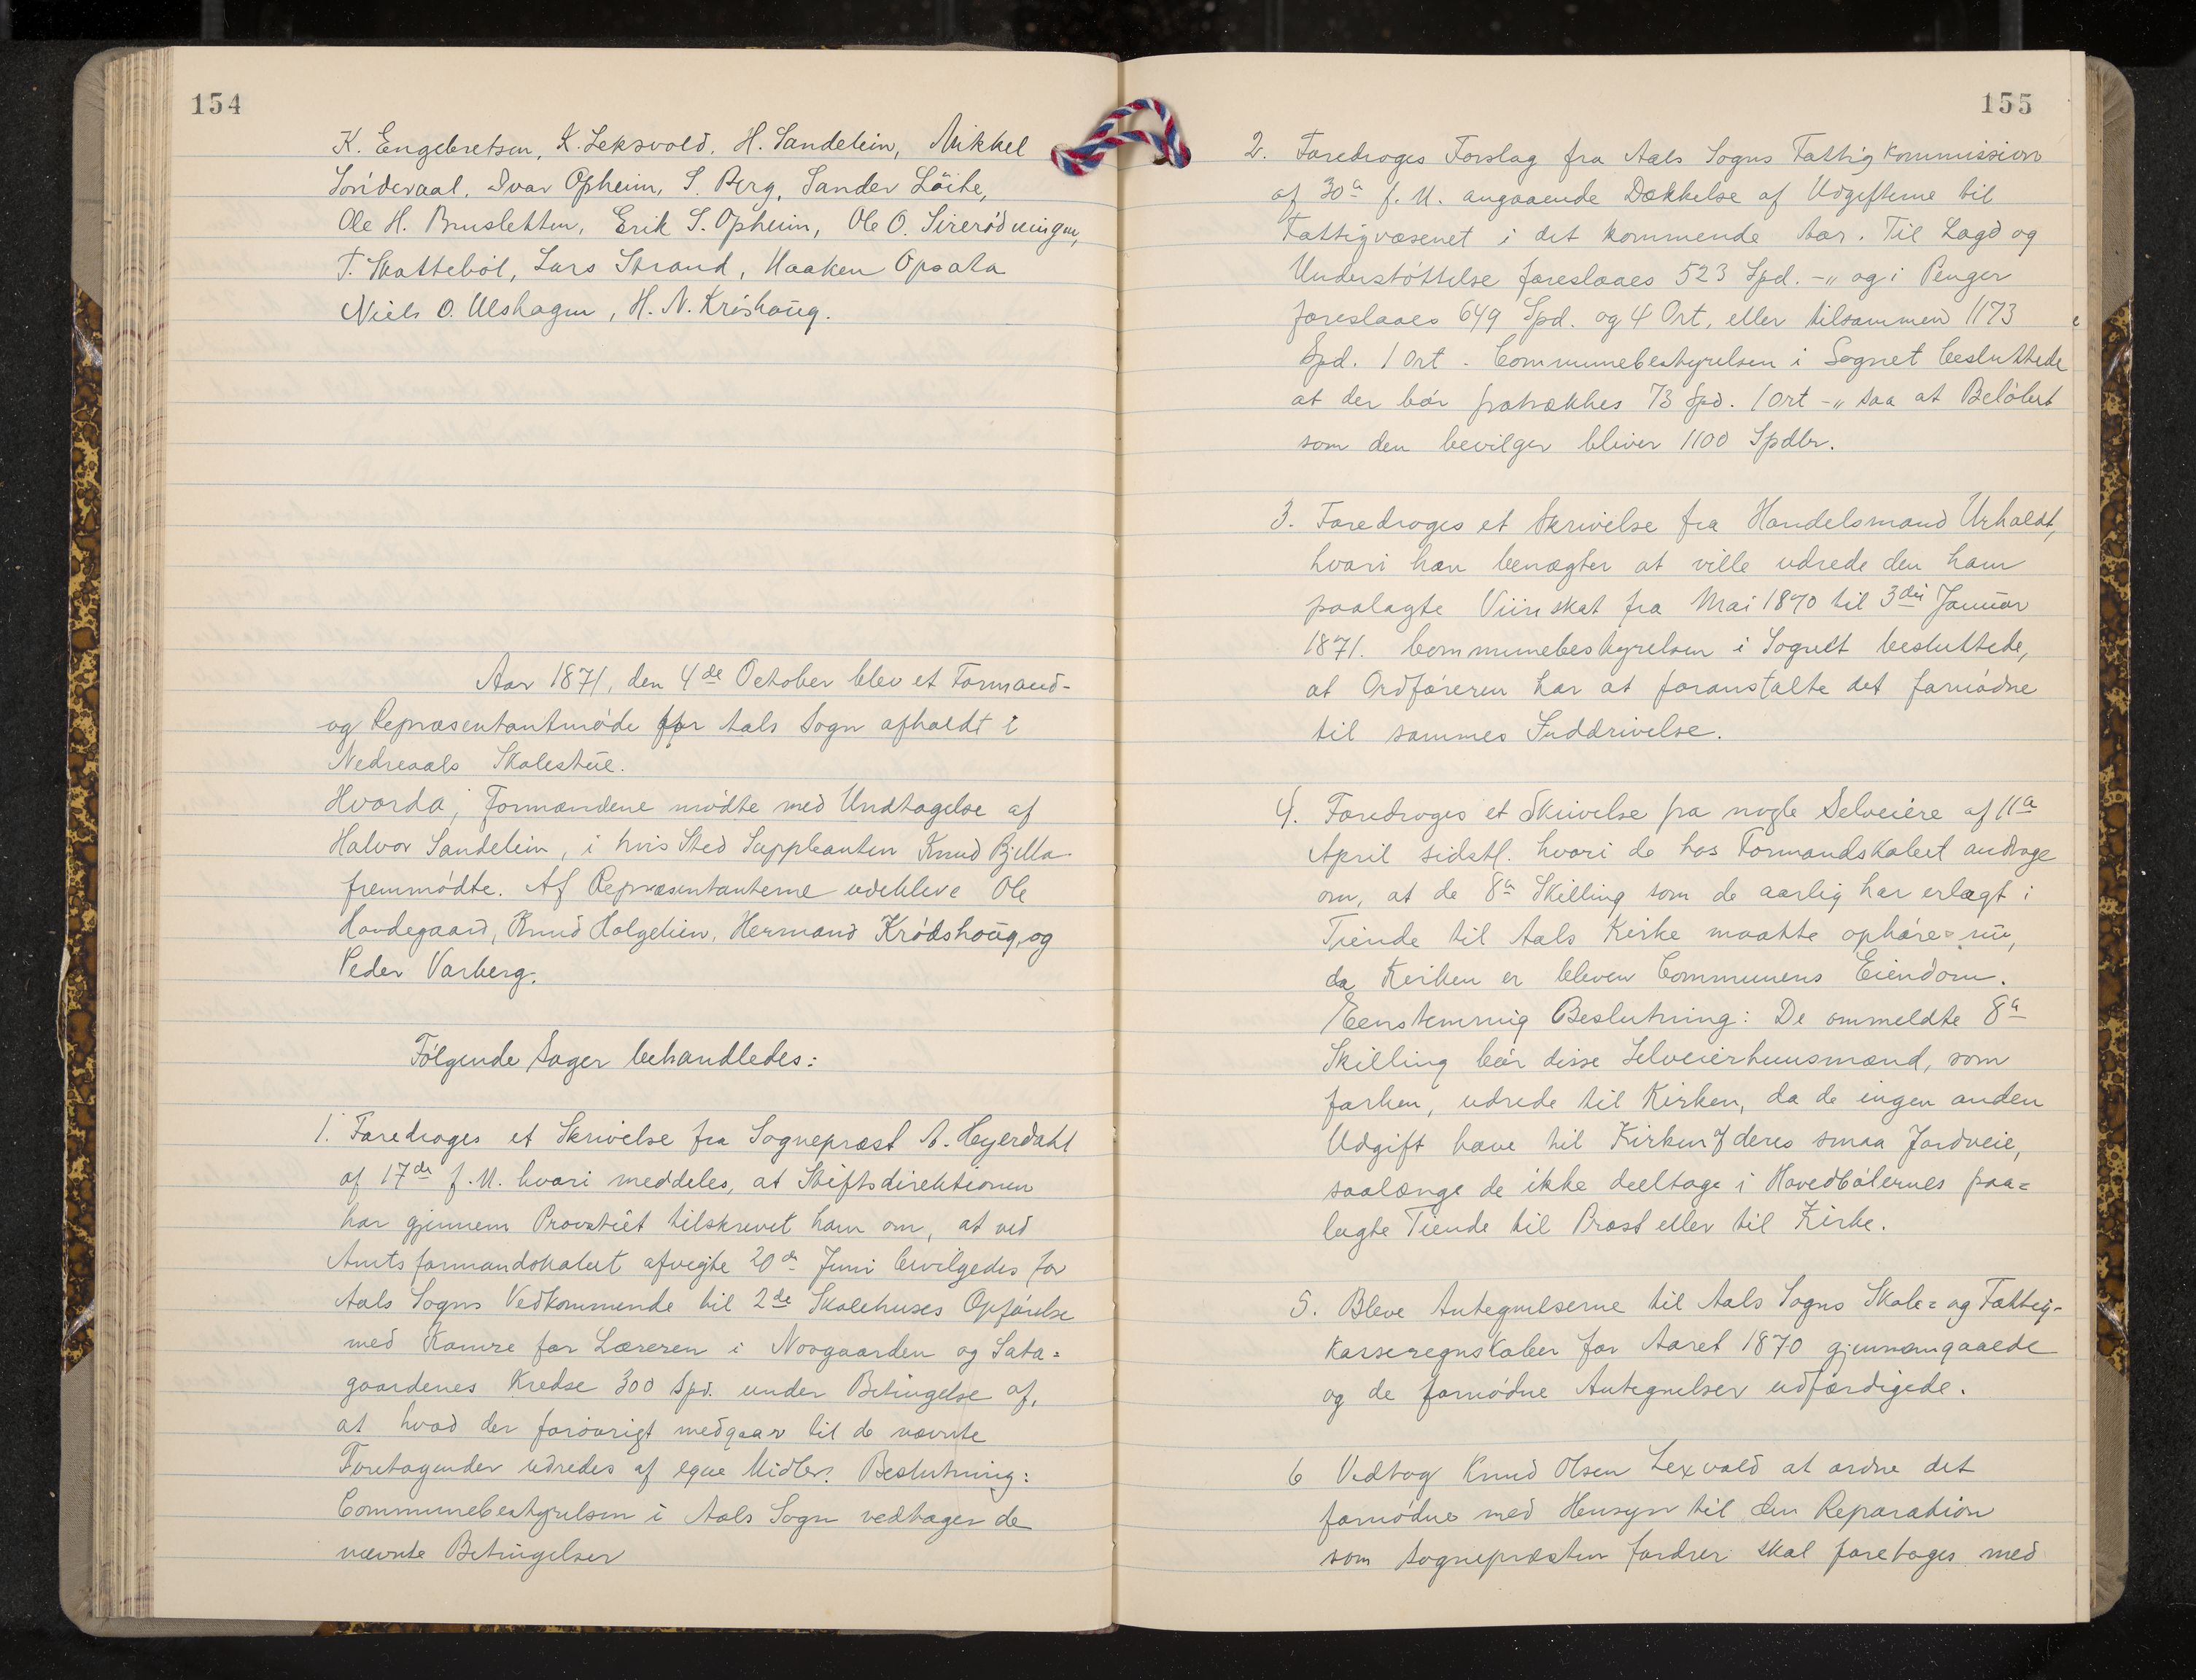 154
K. Engebretsen, K. Leksvold, H. Sandelein, Mikkel
Sønderaal, Ivar Opheim, S. Berg, Sander Löite,
Ole H. Brusletten, Erik S. Opheim, Ole O. Sirerødningen,
T. Skattebøl, Lars Strand, Haaken Opsata
Niels O. Ulshagen, H. N. Krøshoug.
Aar 1871, den 4de October blev et Formand-
og Repræsentantmøde for Aals Sogn afholdt i
Nedreaals Skolestue.
Hvorda, Formændene mødte med Undtagelse af
Halvor Sandelein, i hvis Sted Suppleanten Knud Bjella
fremmødte. Af Repræsentanterne udebleve Ole
Hovdegaard, Knud Holgelien, Hermand Krødshoug, og
Peder Varberg.
Følgende Sager behandledes:
1. Foredroges et Skrivelse fra Sognepræst A. Heyerdahl
af 17de f. M. hvori meddeles, at Stiftsdirektionen
har gjennem Provstiet tilskrevet ham om, at ved
Amtsformandskabet afvigte 20de Juni bevilgedes for
Aals Sogns Vedkommende til 2de Skolehuses Opførelse
med Kamre for Læreren i Norgaarden og Sata=
gaardenes Kredse 300 Spd. under Betingelse af,
at hvad der forøvrigt medgaar til de nævnte
Foretagender udredes af egne Midler. Beslutning:
Communebestyrelsen i Aals Sogn vedtager de
nævnte Betingelser
155
2. Foredroges Forslag fra Aals Sogns Fattigkommission
af 30te f. M. angaaende Dækkelse af Udgifterne til
Fattigvæsenet i det kommende Aar. Til Lagd og
Understøttelse foreslaaes 523 Spd. -„ og i Penger
foreslaaes 649 Spd. og 4 Ort, eller tilsammen 1173
Spd. 1 Ort. Communebestyrelsen i Sognet besluttede
at der bør fratrækkes 73 Spd. 1 Ort -„ saa at Beløbet
som den bevilger bliver 1100 Spdlr.
3. Foredroges et Skrivelse fra Handelsmand Urholdt,
hvori han benægter at ville udrede den ham
paalagte Viinskat fra Mai 1870 til 3die Januar
1871. Communebestyrelsen i Sognet besluttede,
at Ordføreren har at foranstalte det fornødne
til sammes Inddrivelse.
4. Foredroges et Skrivelse fra nogle Selveiere af 11te
April sidstl. hvori de hos Formandskabet androge
om, at de 8te Skilling som de aarlig har erlagt i
Tiende til Aals Kirke maatte ophøre nu,
da Kirken er bleven Communens Eiendom.
Eenstemmig Beslutning: De ommeldte 8te
Skilling bør disse Selveierhuusmænd, som
forhen, udrede til Kirken, da de ingen anden
Udgift have til Kirken af deres smaa Jordveie,
saalænge de ikke deeltage i Hovedbølernes paa=
lagte Tiende til Præst eller til Kirke.
5. Bleve Antegnelserne til Aals Sogns Skole= og Fattig-
Kasseregnskaber for Aaret 1870 gjennemgaaede
og de fornødne Antegnelser udfærdigede.
6 Vedtog Knud Olsen Lexvold at ordne det
fornødne med Hensyn til den Reparation
som Sognepræsten fordrer skal foretages med